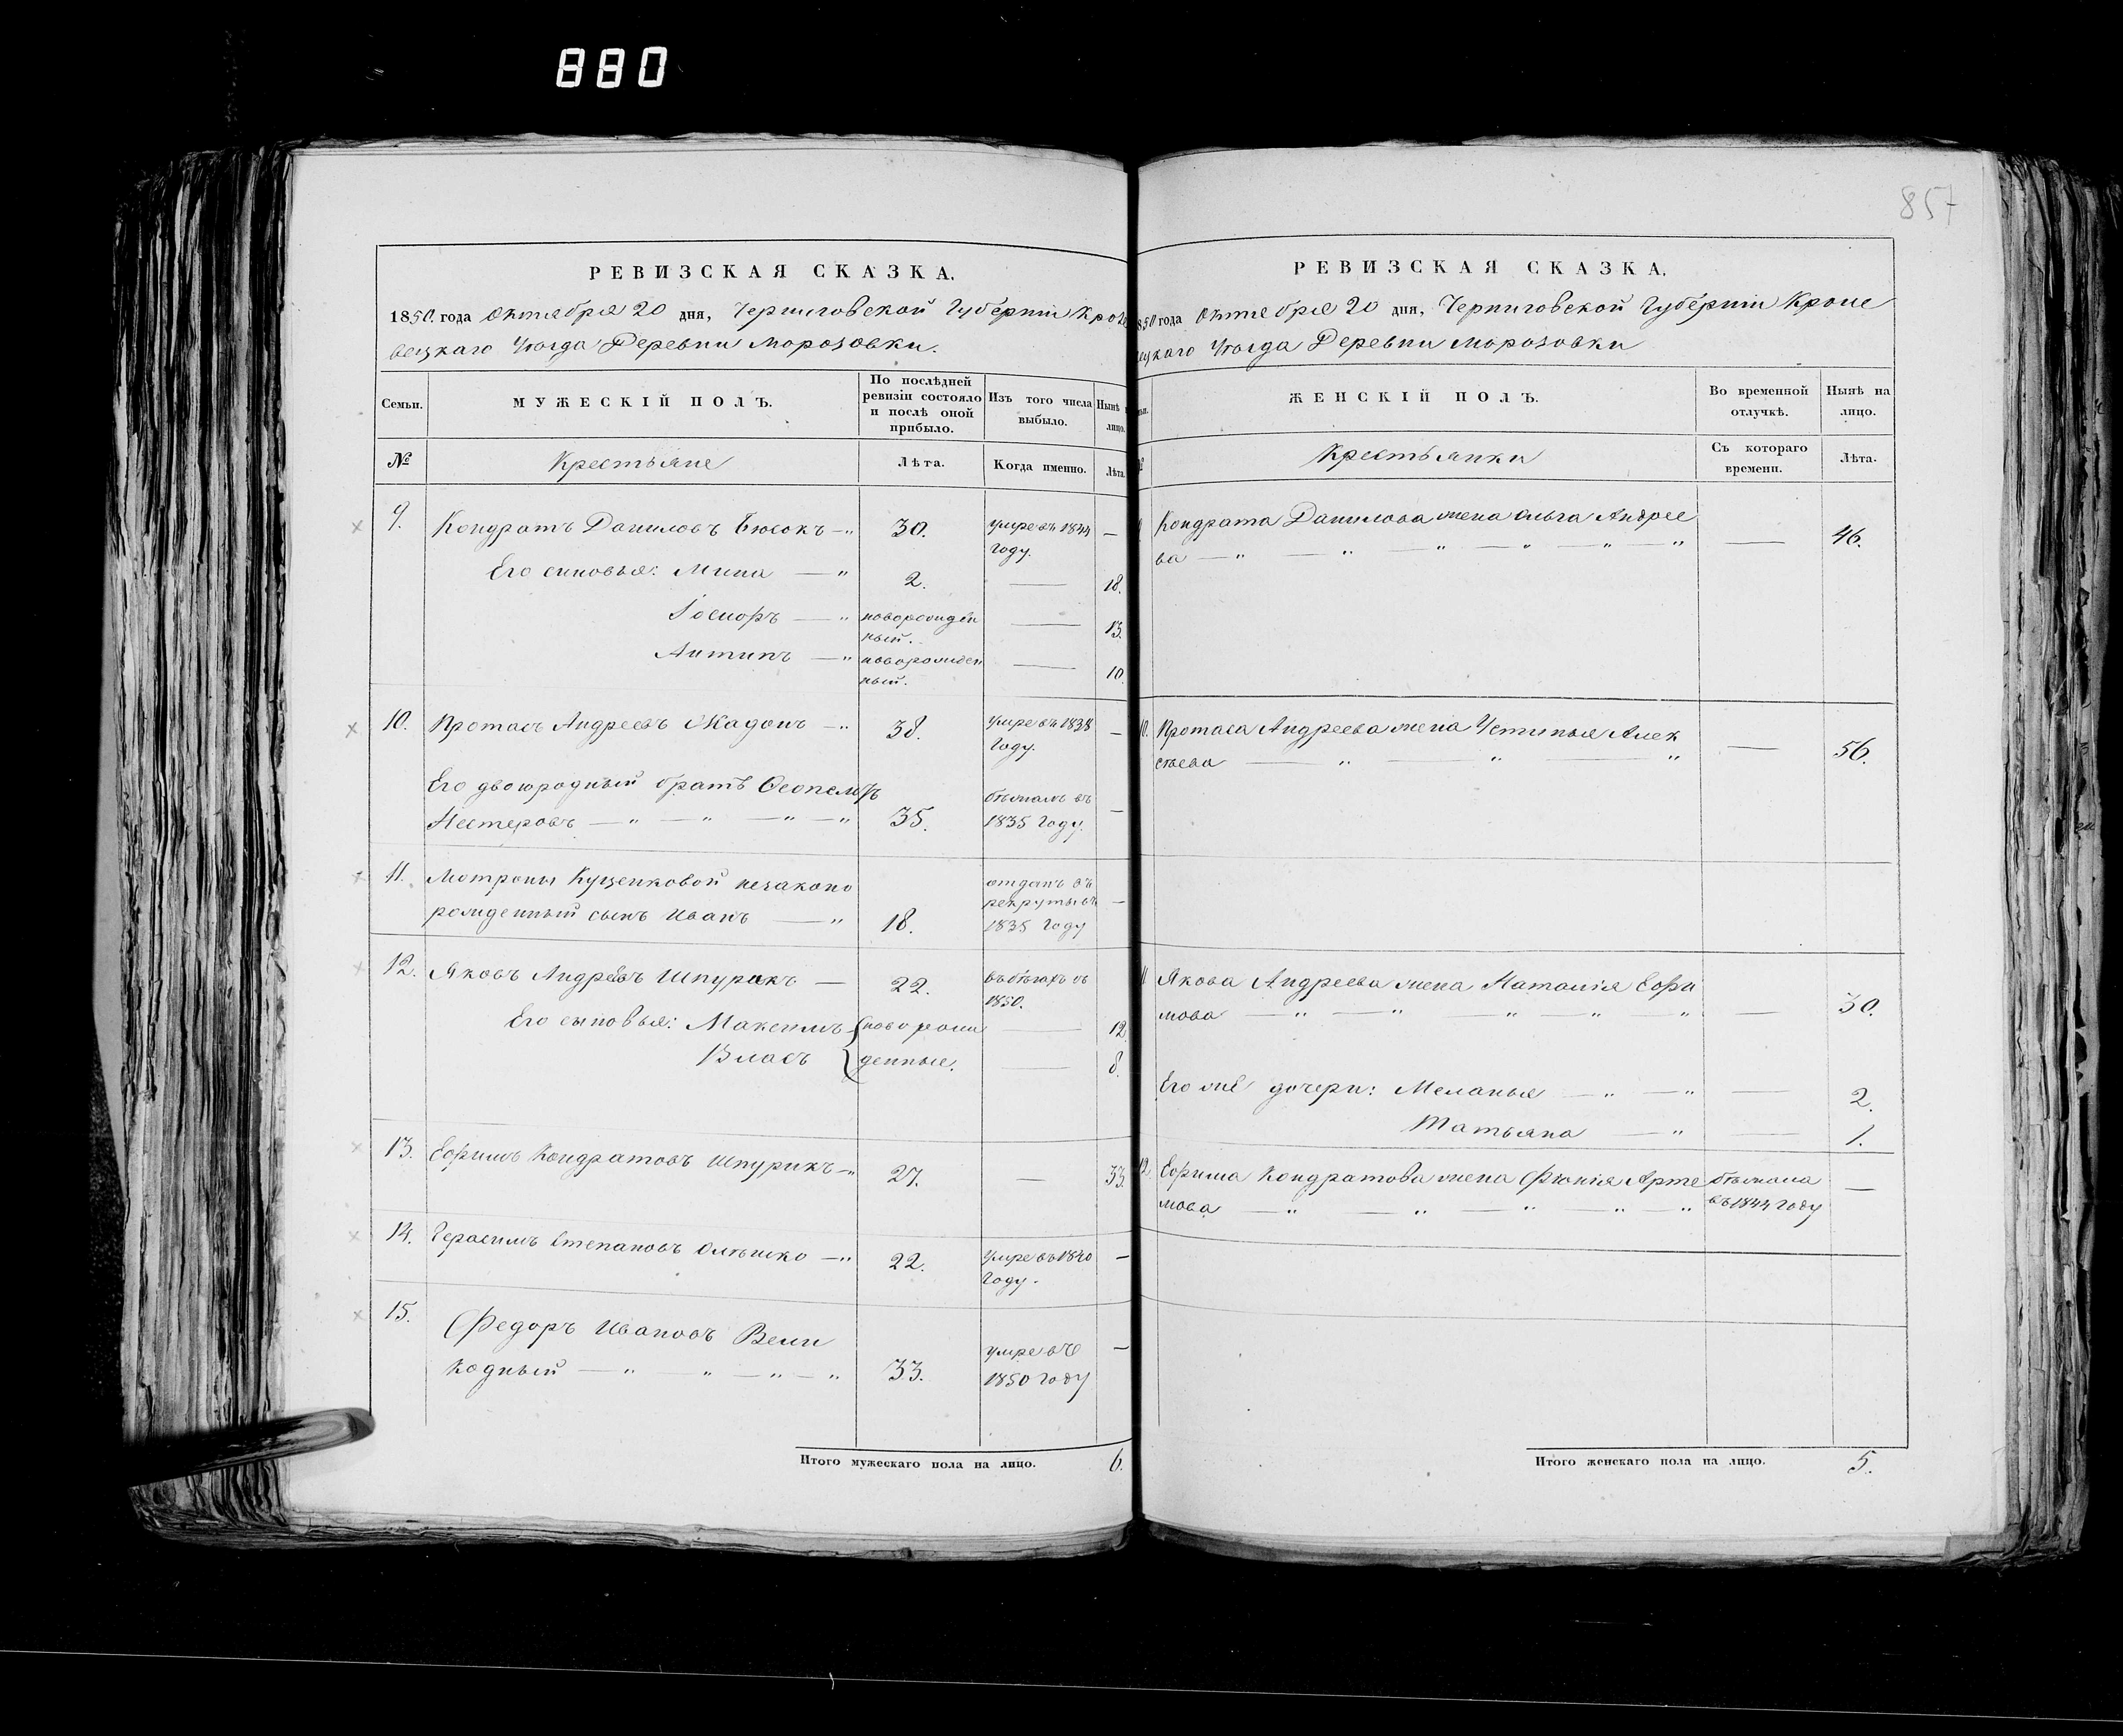 880
857
РЕВИЗСКАЯ СКАЗКА.
1850. года Октября 20 дня, Черниговской Губерніи Кроле
вецкаго Уѣзда Деревни Морозовки.
Семьи.
МУЖЕСКІЙ ПОЛЪ.
По послѣдней ревизіи состояло и послѣ оной прибыло.
Изъ того числа выбыло.
Нынѣ лицо.
№
Крестьяне
Лѣта.
Когда именно.
Лѣта
9. Кондратъ Даниловъ — „ 30. умре въ 1844 —
году.
Его сыновья: Мина — „ 2. — 18.
Іосифъ — „ новорожден — 13.
ный.
Антипъ — „ новорожден — 10.
ный.
10. Протасъ Андреевъ Жадонъ — „ 38. умре въ 1838 —
году.
Его двоюродный братъ
Нестеровъ — „ — „ — „ — „ 35. бѣжалъ въ —
1835 году.
11. Мотроны Куценковой незаконо
рожденный сынъ Иванъ — „ 18. отданъ въ —
рекруты въ
1835 году
12. Яковъ Андреевъ Шпурикъ — 22. въ бѣгахъ съ
1850.
Его сыновья: Максимъ { новорож — 12
Власъ { денные. — 8.
13. Ефимъ Кондратовъ Шпурикъ — „ 27. — 33.
14. Герасимъ Степановъ — „ 22. умре въ 1840 —
году.
15. Федоръ Ивановъ Вели
кодный — „ — „ — „ — „ 33. умре въ —
1850 году
Итого мужескаго пола на лицо. 6.
РЕВИЗСКАЯ СКАЗКА.
850 года Октября 20 дня, Черниговской Губерніи Кроле
ецкаго Уѣзда Деревни Морозовки
ЖЕНСКІЙ ПОЛЪ.
Во временной отлучкѣ.
Нынѣ на лицо.
Крестьянки
Съ котораго времени.
Лѣта.
Кондрата Данилова жена Ольга Андрее
ва — „ — „ — „ — „ — „ — „ — 46.
10. Протаса Андреева жена Устинья Алек
сѣева — „ — „ — „ — 56.
11 Якова Андреева жена Наталія Ефи
мова — „ — „ — „ — „ — „ — 30.
Его же дочери: Меланья — „ — „ — 2.
Татьяна — „ — 1.
12. Ефима Кондратова жена Арте бѣжала —
мова — „ — „ — „ — „ — „ въ 1844 году
Итого женскаго пола на лицо. 5.